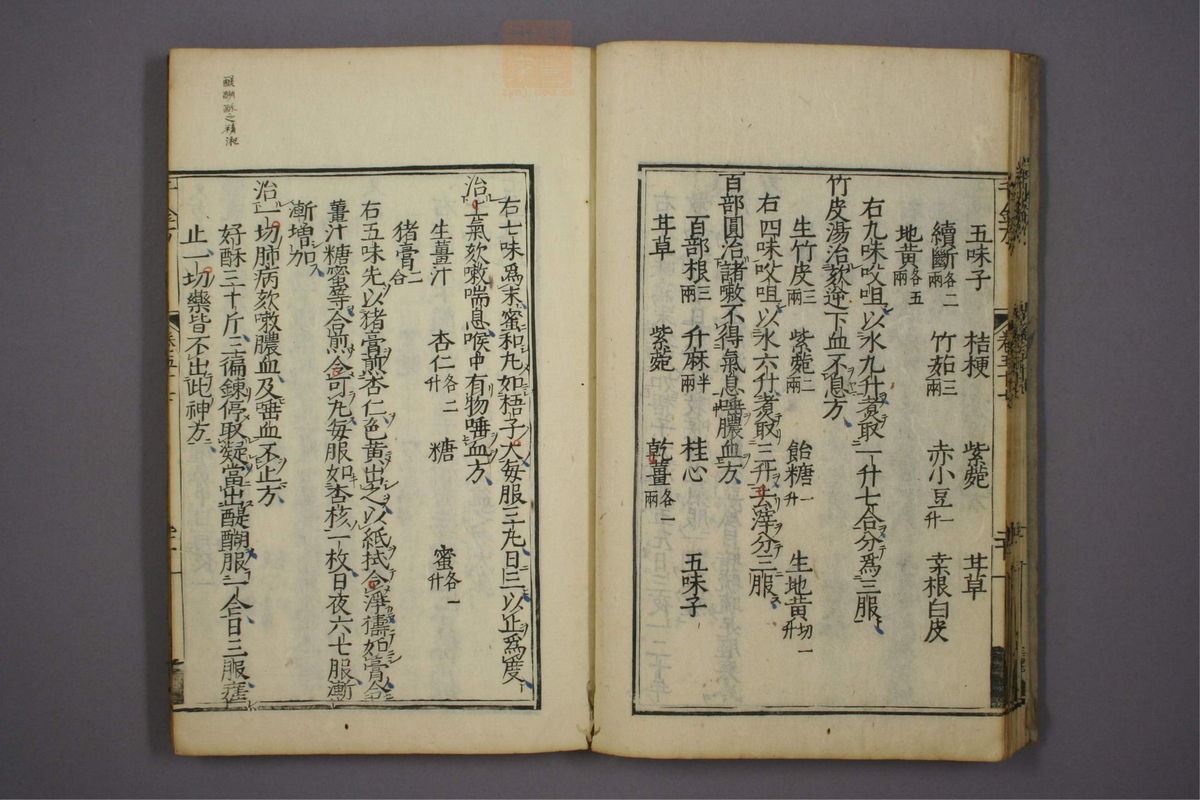 五味子 桔梗 紫菀 甘草
續斷各二兩 竹茹三兩 赤小豆一升 桑根白皮
地黃各五兩
右九味㕮咀以水九升煮取一升七合分爲三服
竹皮湯治欬逆下血不息方
生竹皮三兩 紫菀二兩 飴糖一升 生地黃切一升
右四味㕮咀以水六升煮取三升去滓分三服
百部圓治諸嗽不得氣息唾膿血方
百部根三兩 升麻半兩 桂心 五味子
甘草 紫菀 乾薑各一兩
右七味爲末蜜和丸如梧子大每服三丸日三以止爲度
治上氣欬嗽喘息喉中有物唾血方
生薑汁 杏仁各二升 糖 蜜各一升
猪膏二合
右五味先以猪膏煎杏仁色黃出之以紙拭令淨擣如膏合
薑汁糖蜜等合煎令可丸每服如杏核一枚日夜六七服漸
漸增加
治一切肺病欬嗽膿血及唾血不止方
好酥三十斤三徧鍊停取凝當出醍醐服一合日三服瘥
止一切藥皆不出此神方
醍醐酥之精液
千金方
卷五十七